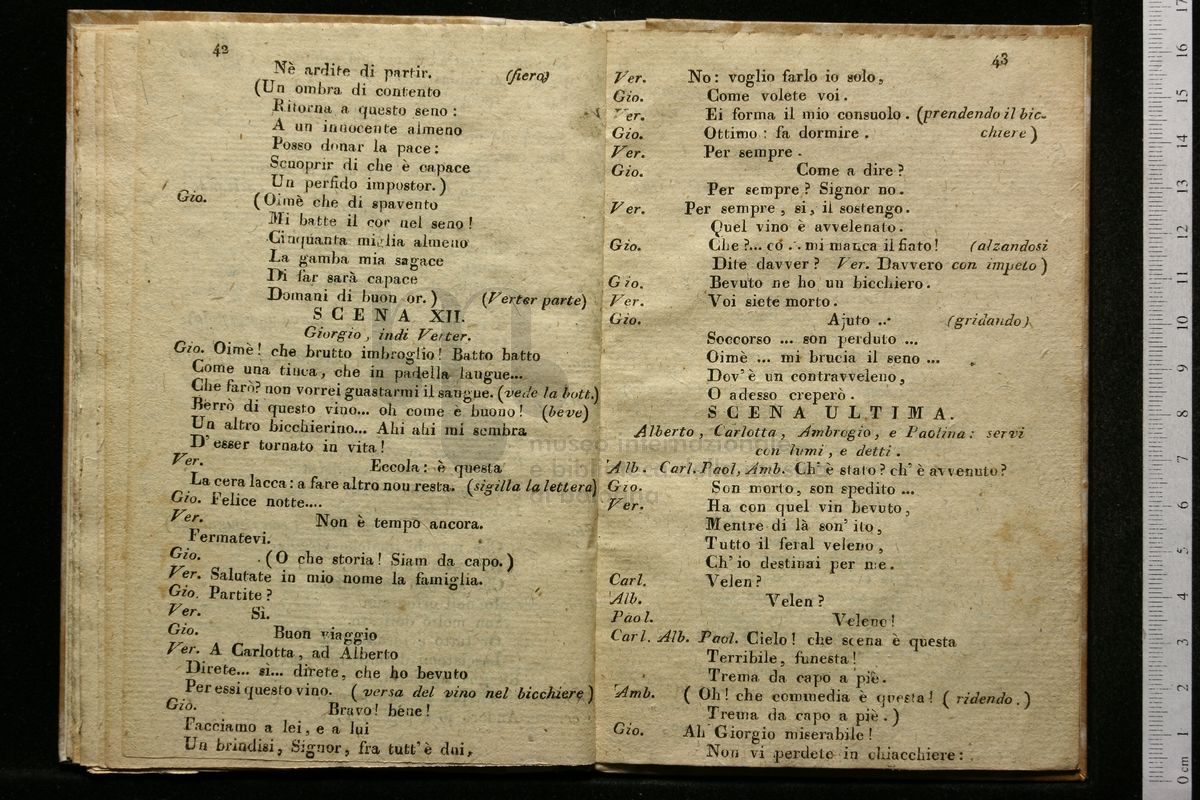 42
Nè ardite di partir. (fiero)
(Un ombra di contento
Ritorna a questo seno :
A un innocente almeno
Posso donar la pace :
Scuoprir di che è capace
Un perfido impostor. )
Gio. (Oimè che di spavento
Mi batte il cor nel seno !
Cinquanta miglia almeno
La gamba mia sagace
Di far sarà capace
Domani di buon or. ) (Verter parte)
SCENA XII.
Giorgio, indi Verter.
Gio. Oimè! che brutto imbroglio! Batto batto
Come una tinca, che in padella langue...
Che farò? non vorrei guastarmi il sangue. (vede la bott.)
Berrò di questo vino... oh come è buono! (beve)
Un altro bicchierino... Ahi ahi mi sembra
D'esser tornato in vita!
Ver. Eccola : è questa
La cera lacca : a fare altro non resta. (sigilla la lettera)
Gio. Felice notte....
Ver. Non è tempo ancora.
Fermatevi.
Gio. (O che storia! Siam da capo.)
Ver. Salutate in mio nome la famiglia.
Gio. Partite ?
Ver. Sì.
Gio. Buon viaggio
Ver. A Carlotta, ad Alberto
Direte... sì... direte, che ho bevuto
Per essi questo vino. ( versa del vino nel bicchiere )
Gio. Bravo! bene!
Facciamo a lei, e a lui
Un brindisi, Signor, fra tutt'è dui,
43
Ver. No : voglio farlo io solo,
Gio. Come volete voi.
Ver. Ei forma il mio consuolo. (prendendo il bic-
Gio. Ottimo : fa dormire. chiere )
Ver. Per sempre.
Gio. Come a dire ?
Per sempre ? Signor no.
Ver. Per sempre, si, il sostengo.
Quel vino è avvelenato.
Gio. Che ?... co ... mi manca il fiato! (alzandosi
Dite davver ? Ver. Davvero con impeto )
Gio. Bevuto ne ho un bicchiero.
Ver. Voi siete morto.
Gio. Ajuto ... (gridando)
Soccorso ... son perduto ...
Oimè ... mi brucia il seno ...
Dov' è un contravveleno,
O adesso creperò.
SCENA ULTIMA.
Alberto, Carlotta, Ambrogio, e Paolina : servi
con lumi, e detti.
Alb. Carl. Paol, Amb. Ch' è stato ? ch' è avvenuto ?
Gio. Son morto, son spedito ...
Ver. Ha con quel vin bevuto,
Mentre di là son' ito,
Tutto il feral veleno,
Ch' io destinai per me.
Carl. Velen ?
Alb. Velen ?
Paol. Veleno !
Carl. Alb. Paol. Cielo! che scena è questa
Terribile, funesta !
Trema da capo a piè.
Amb. ( Oh! che commedia è questa! ( ridendo. )
Trema da capo a piè. )
Gio. Ah Giorgio miserabile !
Non vi perdete in chiacchiere :
museo internazionale
e biblioteca della musica
di bologna